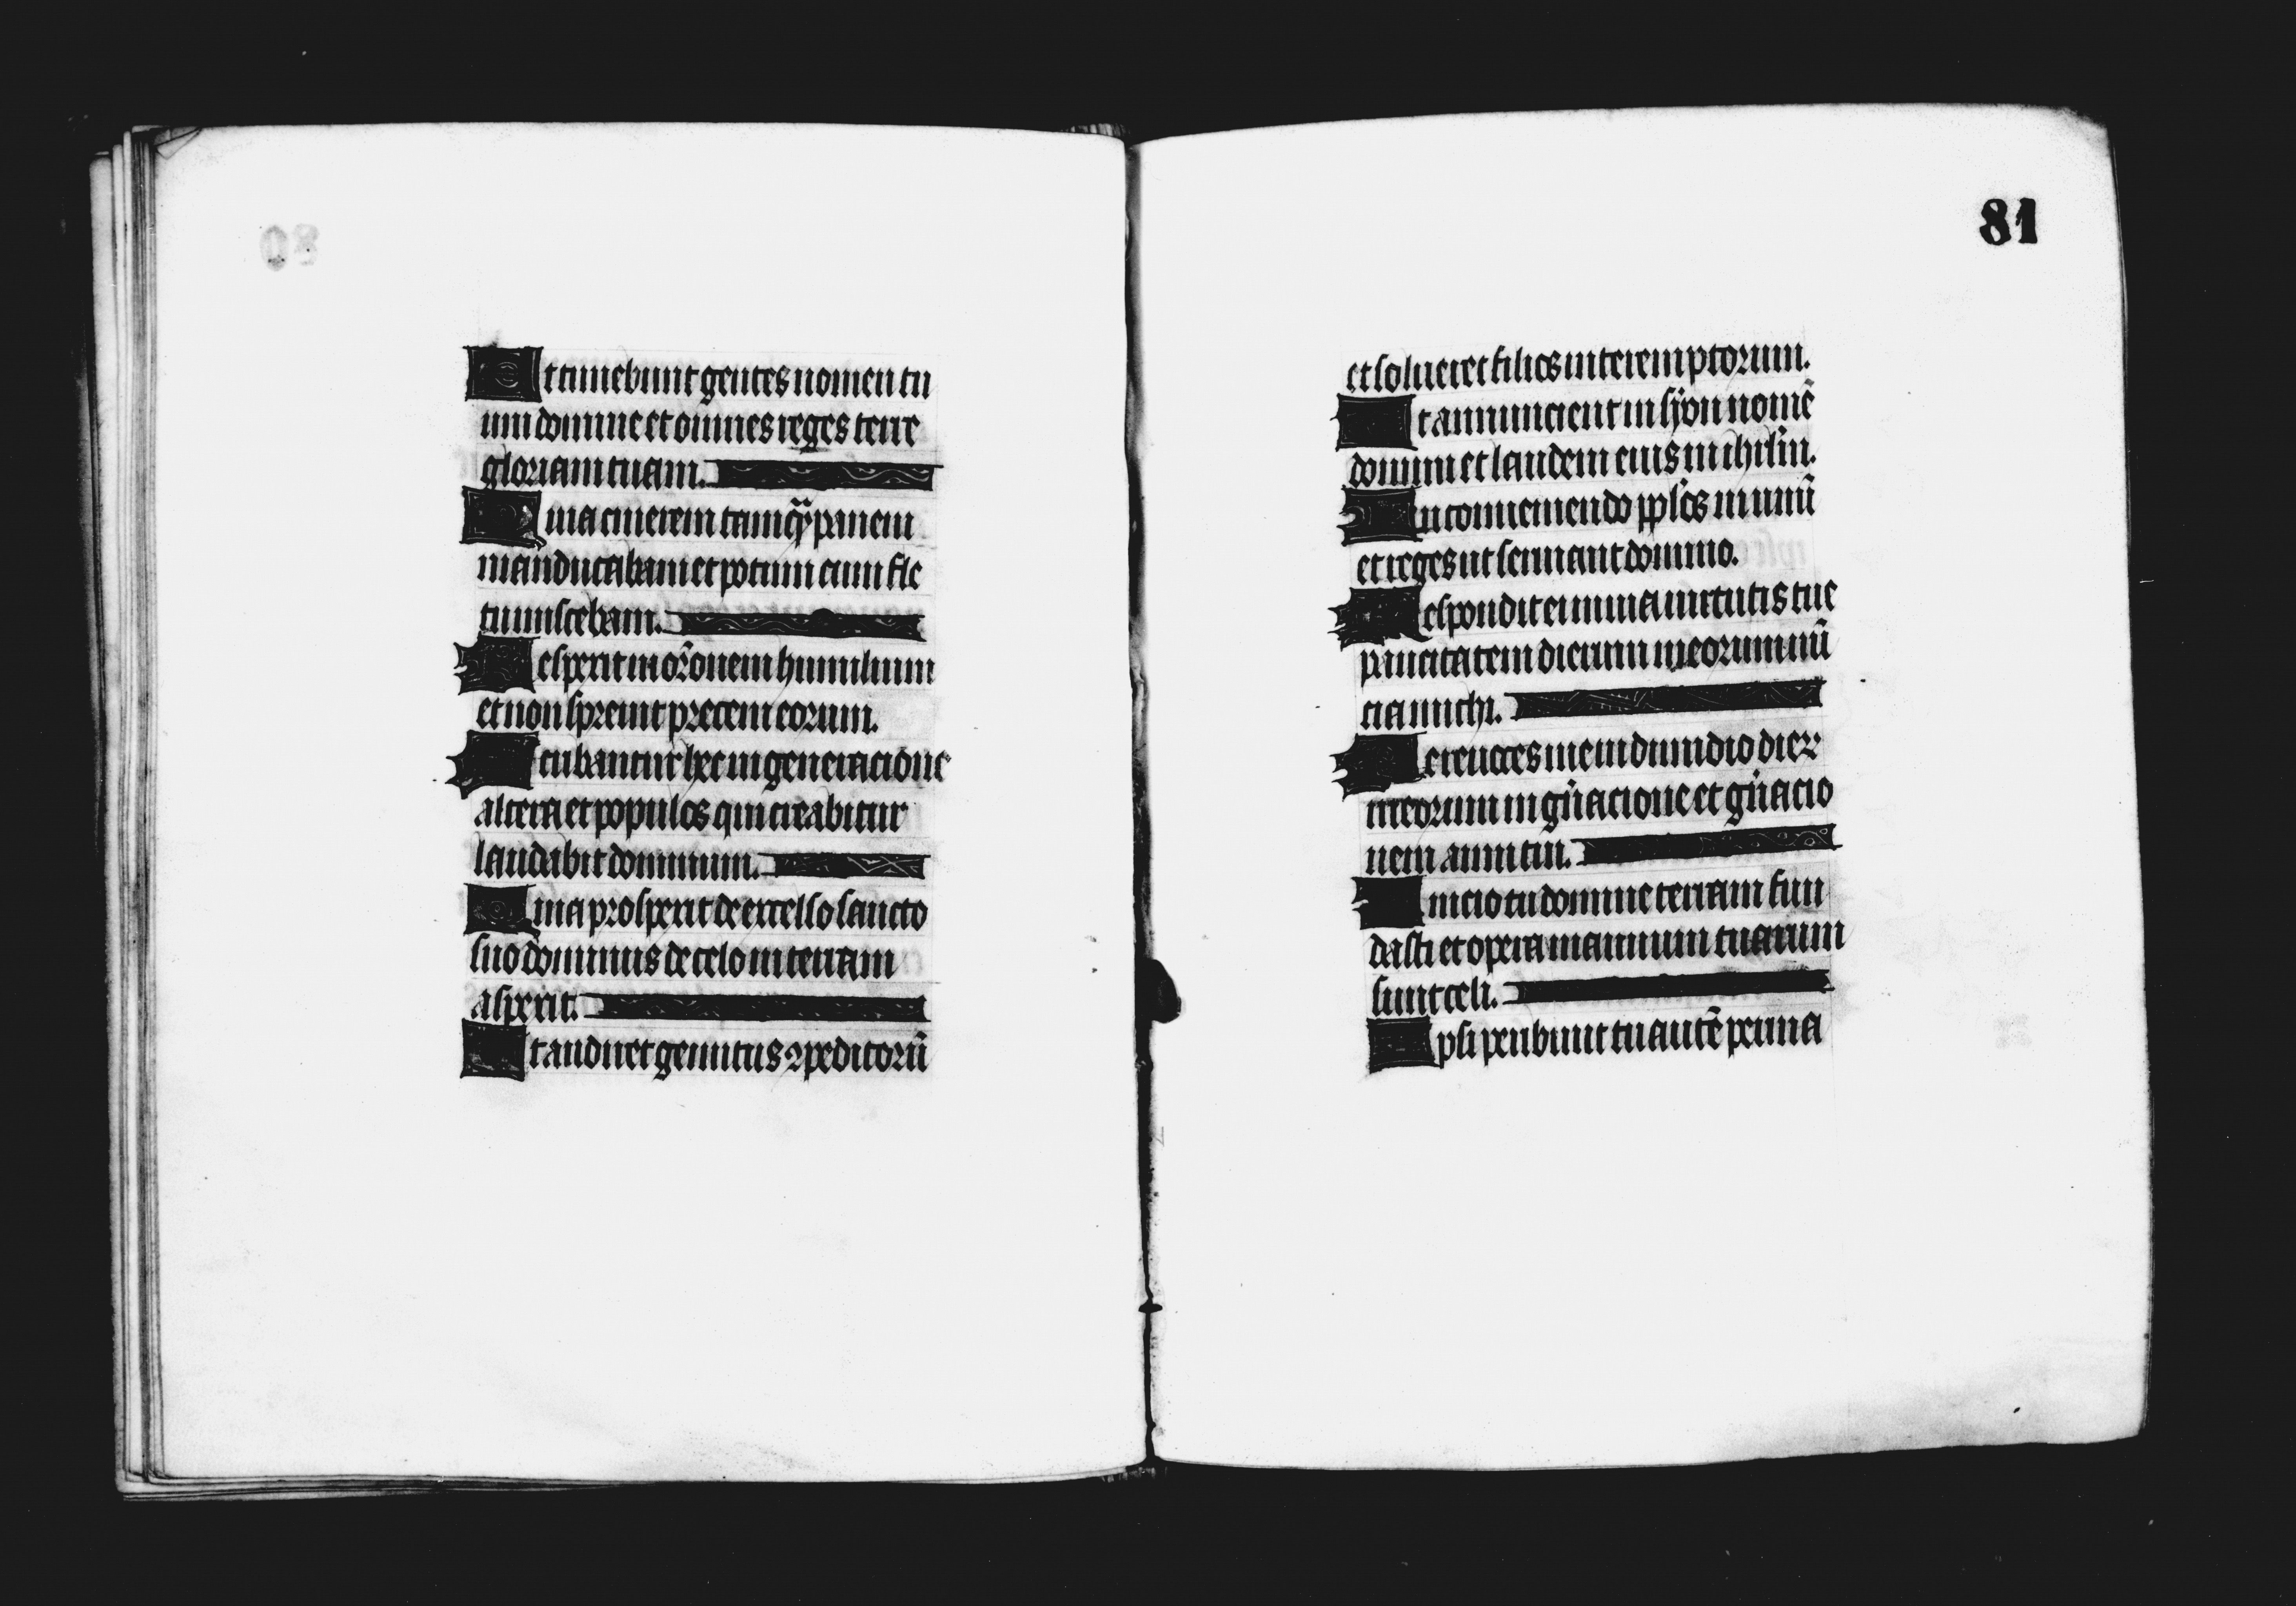 Et timebunt gentes nomen tu
um domine et omnes reges terre
gloriam tuam.
Quia cinerem tamq̃ panem
manducabam et potum cum fle
tu miscebam.
Respexit in or̄onem humilium
et non sprevit precem eorum.
Scribantur hec in generacione
altera et populos qui creabitur
laudabit dominum.
Quia prospexit de excelso sancto
suo dominus de celo in terram
aspexit.
Et audiret gemitus ꝯpeditorū
81
et solveret filios interemptorum.
Et annuncient in syon nomē
domini et laudem eius in ihrl̄m.
In conveniendo pplōs in unū
et reges ut serviant domino.
Respondit ei in via virtutis tue
paucitatem dierum meorum nū
cia michi.
Ne revoces me in dimidio dieꝝ
meorum in gn̄acione et gn̄acio
nem anni tui.
Inicio tu domine terram fun
dasti et opera manuum tuarum
sunt celi.
Ipsi peribunt tu autē perma